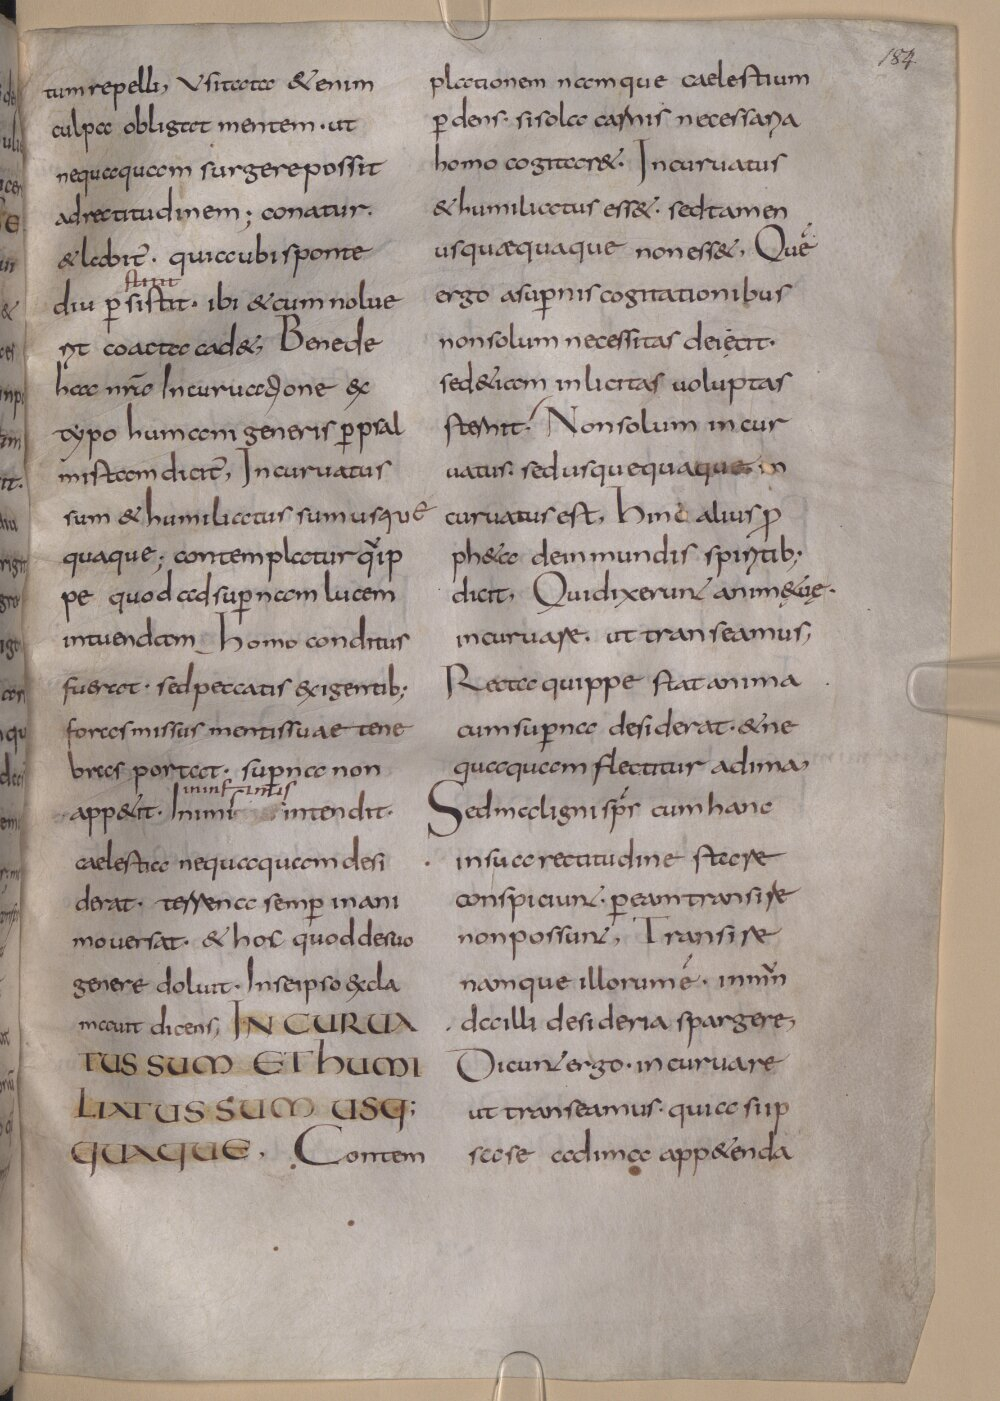 184
tum repelli, Usitata & enim
culpa obligat mentem · ut
nequaquam surgere possit
ad rectitudinem ; conatur ·
& labit̄ · quia ubi sponte
stitit
diu p̱sistit · ibi & cum nolue
rit coacta cad&, Bene de
hac nr̄a Incuruatione ex
typo humani generis p̱ psal
mistam dicit̄, Incuruatus
sum & humiliatus sum usque
quaque ; contemplatur q̄ip
pe quod ad sup̱nam lucem
intuendam homo conditus
fuerat · sed peccatis exigentib;
foras missus mentis suae tene
bras portat · sup̱na non
app&it · Inimis intendit ·
caelestia nequaquam desi
derat · terrena semp̱ in ani
mo uersat · & hoc quod de suo
genere doluit · In se ipso excla
mauit dicens, INCURUA
TUS SUM ET HUMI
LIATUS SUM USQ;
QUAQUE, Contem
plationem namque caelestium
p̱dens · si sola carnis necessaria
homo cogitar& · Incuruatus
& humiliatus ess& · sed tamen
usquæquaque non ess&, Quē
ergo a sup̱nis cogitationibus
non solum necessitas deiecit ·
sed &iam inlicitas uoluptas
sternit · Non solum incur
uatus · sed usquequaque in
curuatus est, hinc alius p̱
ph&a de inmundis spiritib;
dicit, Qui dixerunt animę tuę ·
incuruare · ut transeamus,
Recta quippe stat anima
cum sup̱na desiderat · & ne
quaquam flectitur ad ima,
Sed maligni sp̄s cum hanc
in sua rectitudine stare
conspiciunt · p̱ eam transire
non possunt, Transire
namque illorum ē · inmun
da illi desideria spargere,
Dicunt ergo · incuruare
ut transeamus · quia si ip
sa se ad ima app&enda